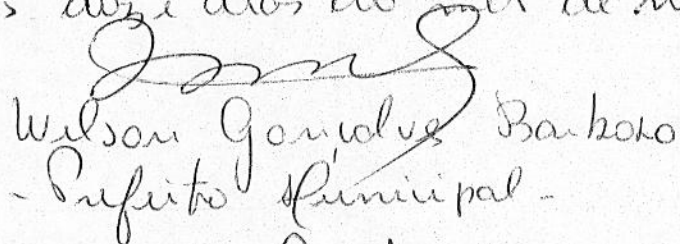 doze dias do mês de
Wilson Gonçalves Barbosa
- Prefeito Municipal -